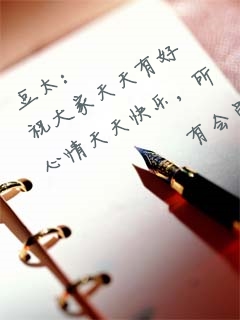 豆太：
祝大家天天有好
心情天天快乐，所
有会